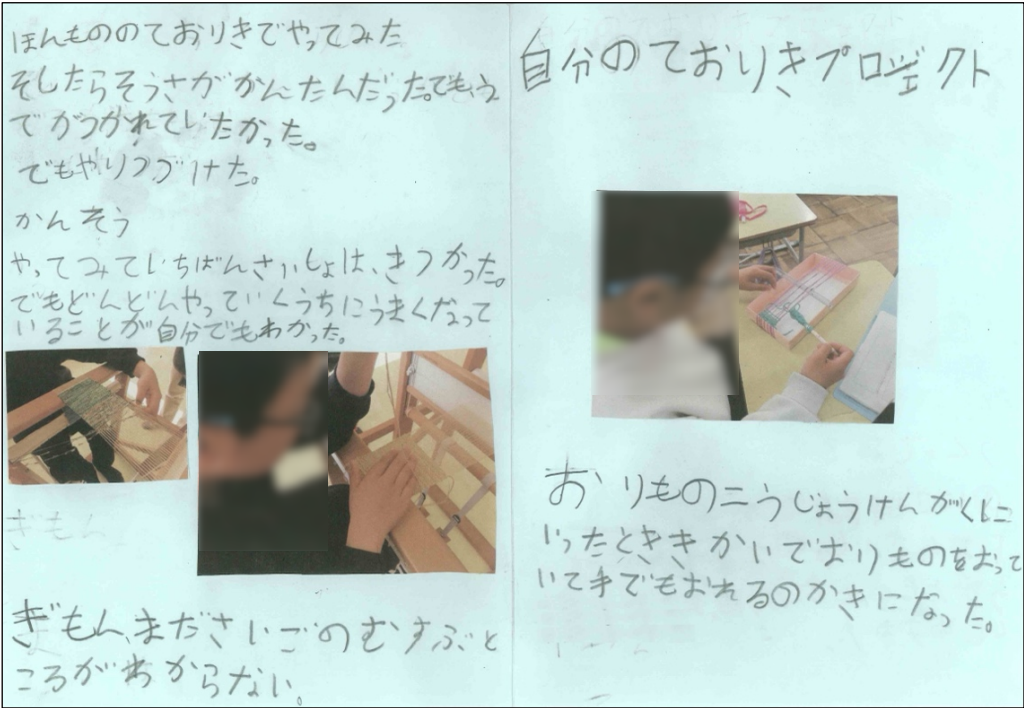 ほんもののておりきでやってみた
そしたらそうさがかんたんだった。でも、う
でがつかれていたかった。
でもやりつづけた。
かんそう
やってみていちばんさいしょは、きつかった。
でもどんどんやっていくうちにうまくなって
いることが自分でもわかった。
ぎもん
ぎもん、まださいごのむすぶと
ころがわからない。
自分のておりきプロジェクト
おりものこうじょうけんがくに
いったとききかいでおりものをおって
いて手でもおれるのかきになった。